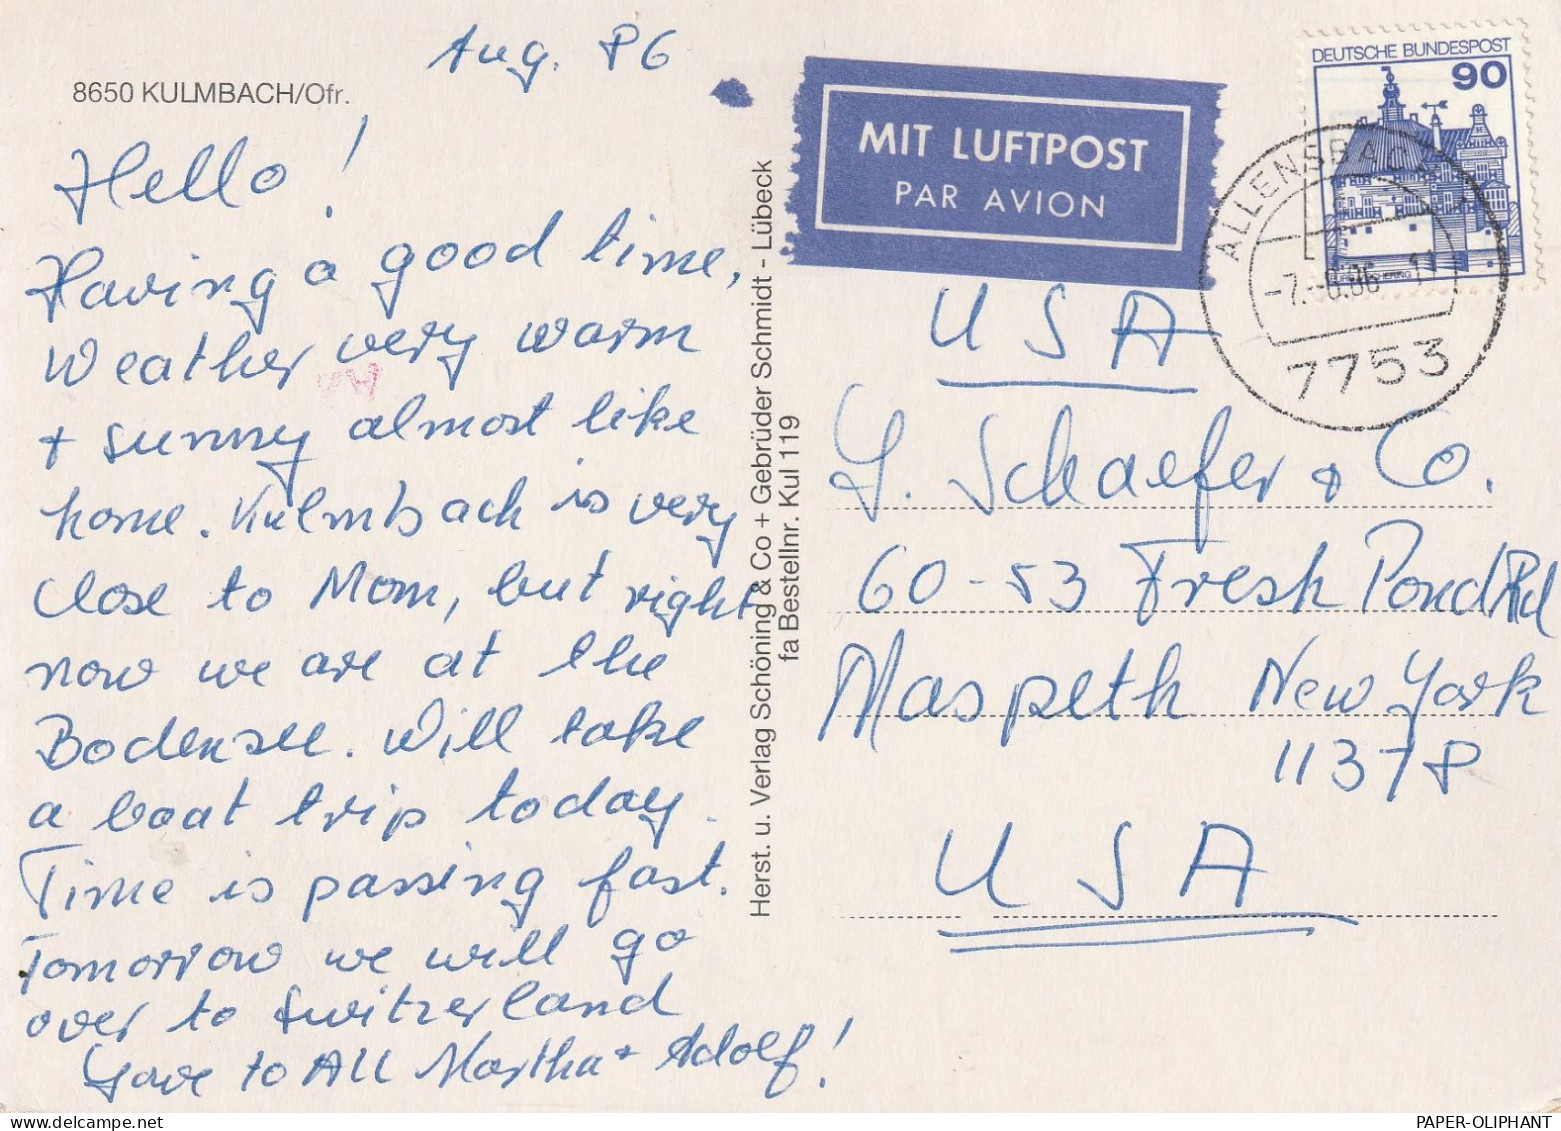 Aug. 86
8650 KULMBACH/Ofr.
Hello!
Having a good time,
Weather very warm
+ sunny almost like
home. Kulmbach is very
close to Mom, but right
now we are at the
Bodensee. Will take
a boat trip today.
Time is passing fast.
Tomorrow we will go
over to Switzerland
Love to ALL Martha + Adolf!
Herst. u. Verlag Schöning & Co + Gebrüder Schmidt - Lübeck
fa Bestellnr. Kul 119
MIT LUFTPOST
PAR AVION
DEUTSCHE BUNDESPOST
90
ALLENSBACH
7753
USA
G. Schaefer + Co.
60-53 Fresh Pond Rd
Maspeth New York
11378
USA
PAPER-OLIPHANT